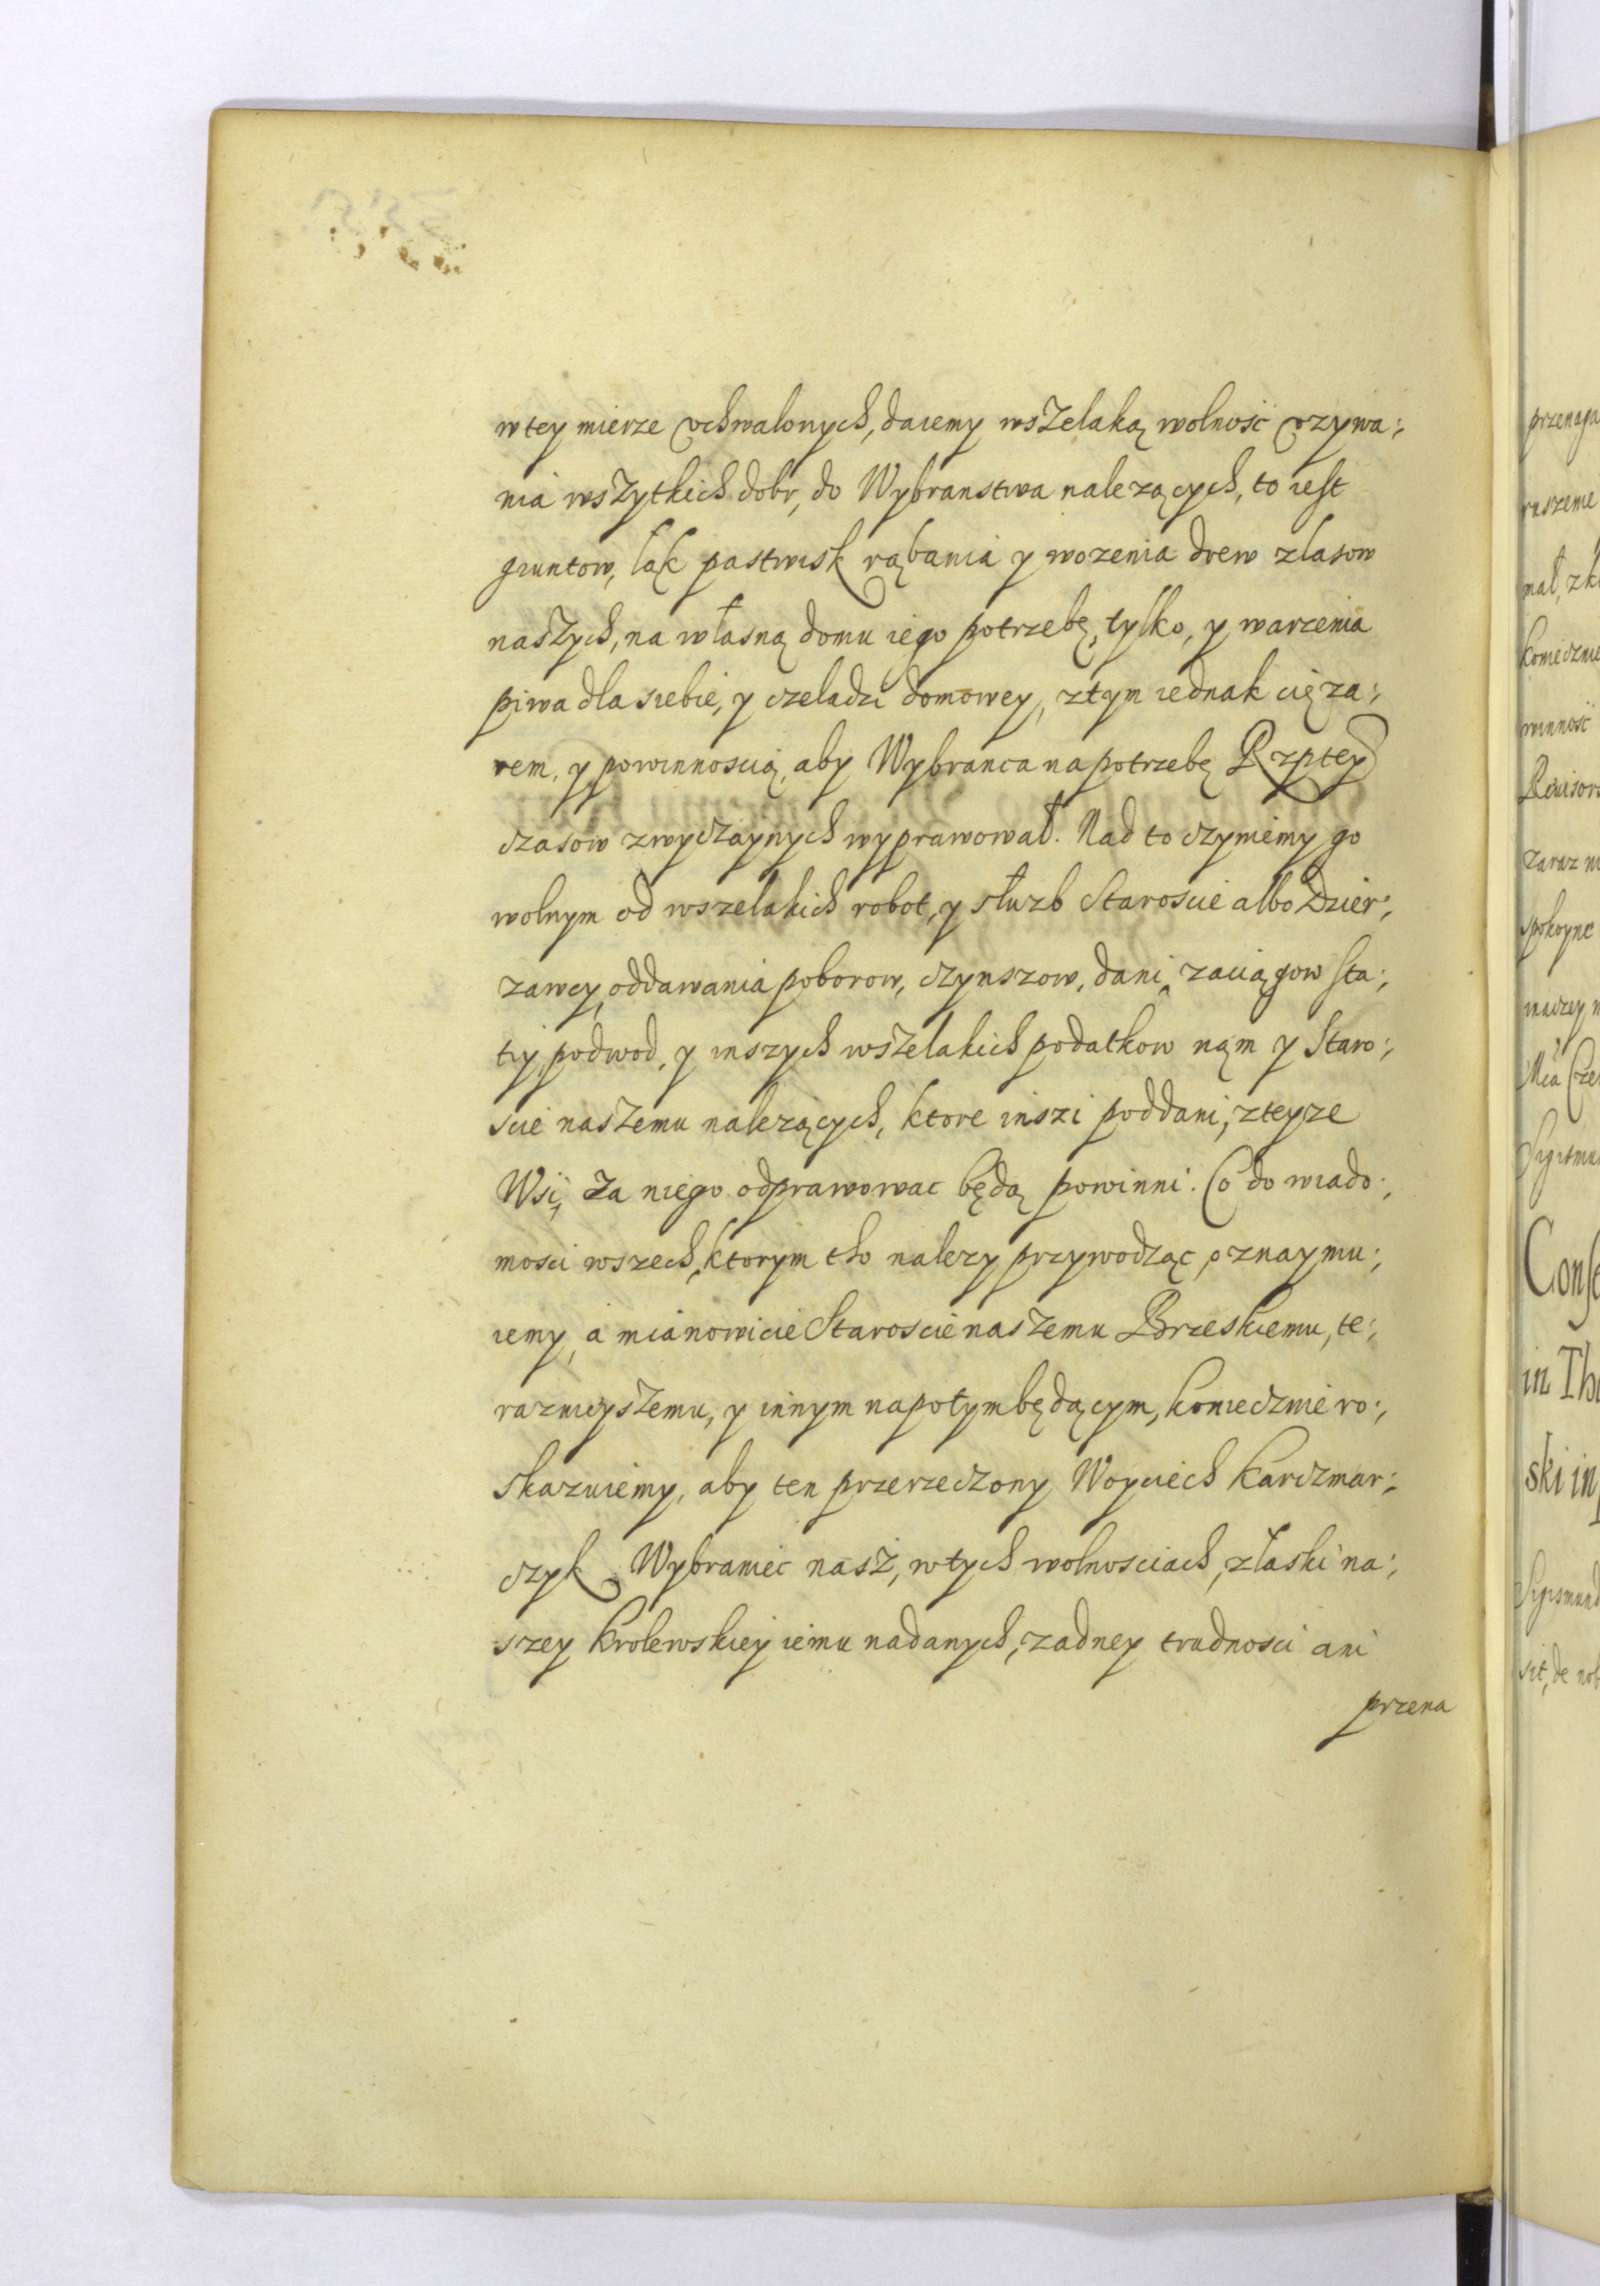 wtey mierze vchwalonych, daiemy wszelaką wolność vzywa:,
nia wszytkich dobr, do Wybranstwa nalezących, to iest
gruntow, łąk pastwisk rąbania y wozenia drew zlasow
naszych, na własną domu iego potrzebę, tylko, y warzenia
piwa dla siebie, y czeladzi domowey, ztym iednak cięza:,
rem, y powinnoscią, aby Wybranca na potrzebę Rzptey
czasow zwyczaynych wyprawował. Nad to czyniemy go
wolnym od wszelakich robot, y służb Staroscie albo Dzier:,
zawcy, oddawania poborow, czynszow, dani, zaciągow sta:,
tiy, podwod, y inszych wszelakich podatkow nąm y Staro:,
scie naszemu nalezących, ktore inszi poddani, zteyze
Wsi, za niego odprawowac będą powinni. Co do wiado:,
mosci wszech, ktorym tho nalezy przywodząc, oznaymu:,
iemy, a mianowicie Staroscie naszemu Brzeskiemu, te:,
raznieyszemu, y innym napotym będącym, koniecznie ro:,
skazuiemy, aby ten przerzeczony Woyciech Karczmar:,
czyk Wybraniec nasz, wtych wolnosciach, złaski na:,
szey Krolewskiey iemu nadanych, zadney trudnosci ani
przena
przenaga
ruszenie
koniecznie
winność
zaraz
spokoyne
inaczey
Const
in Th
ski in